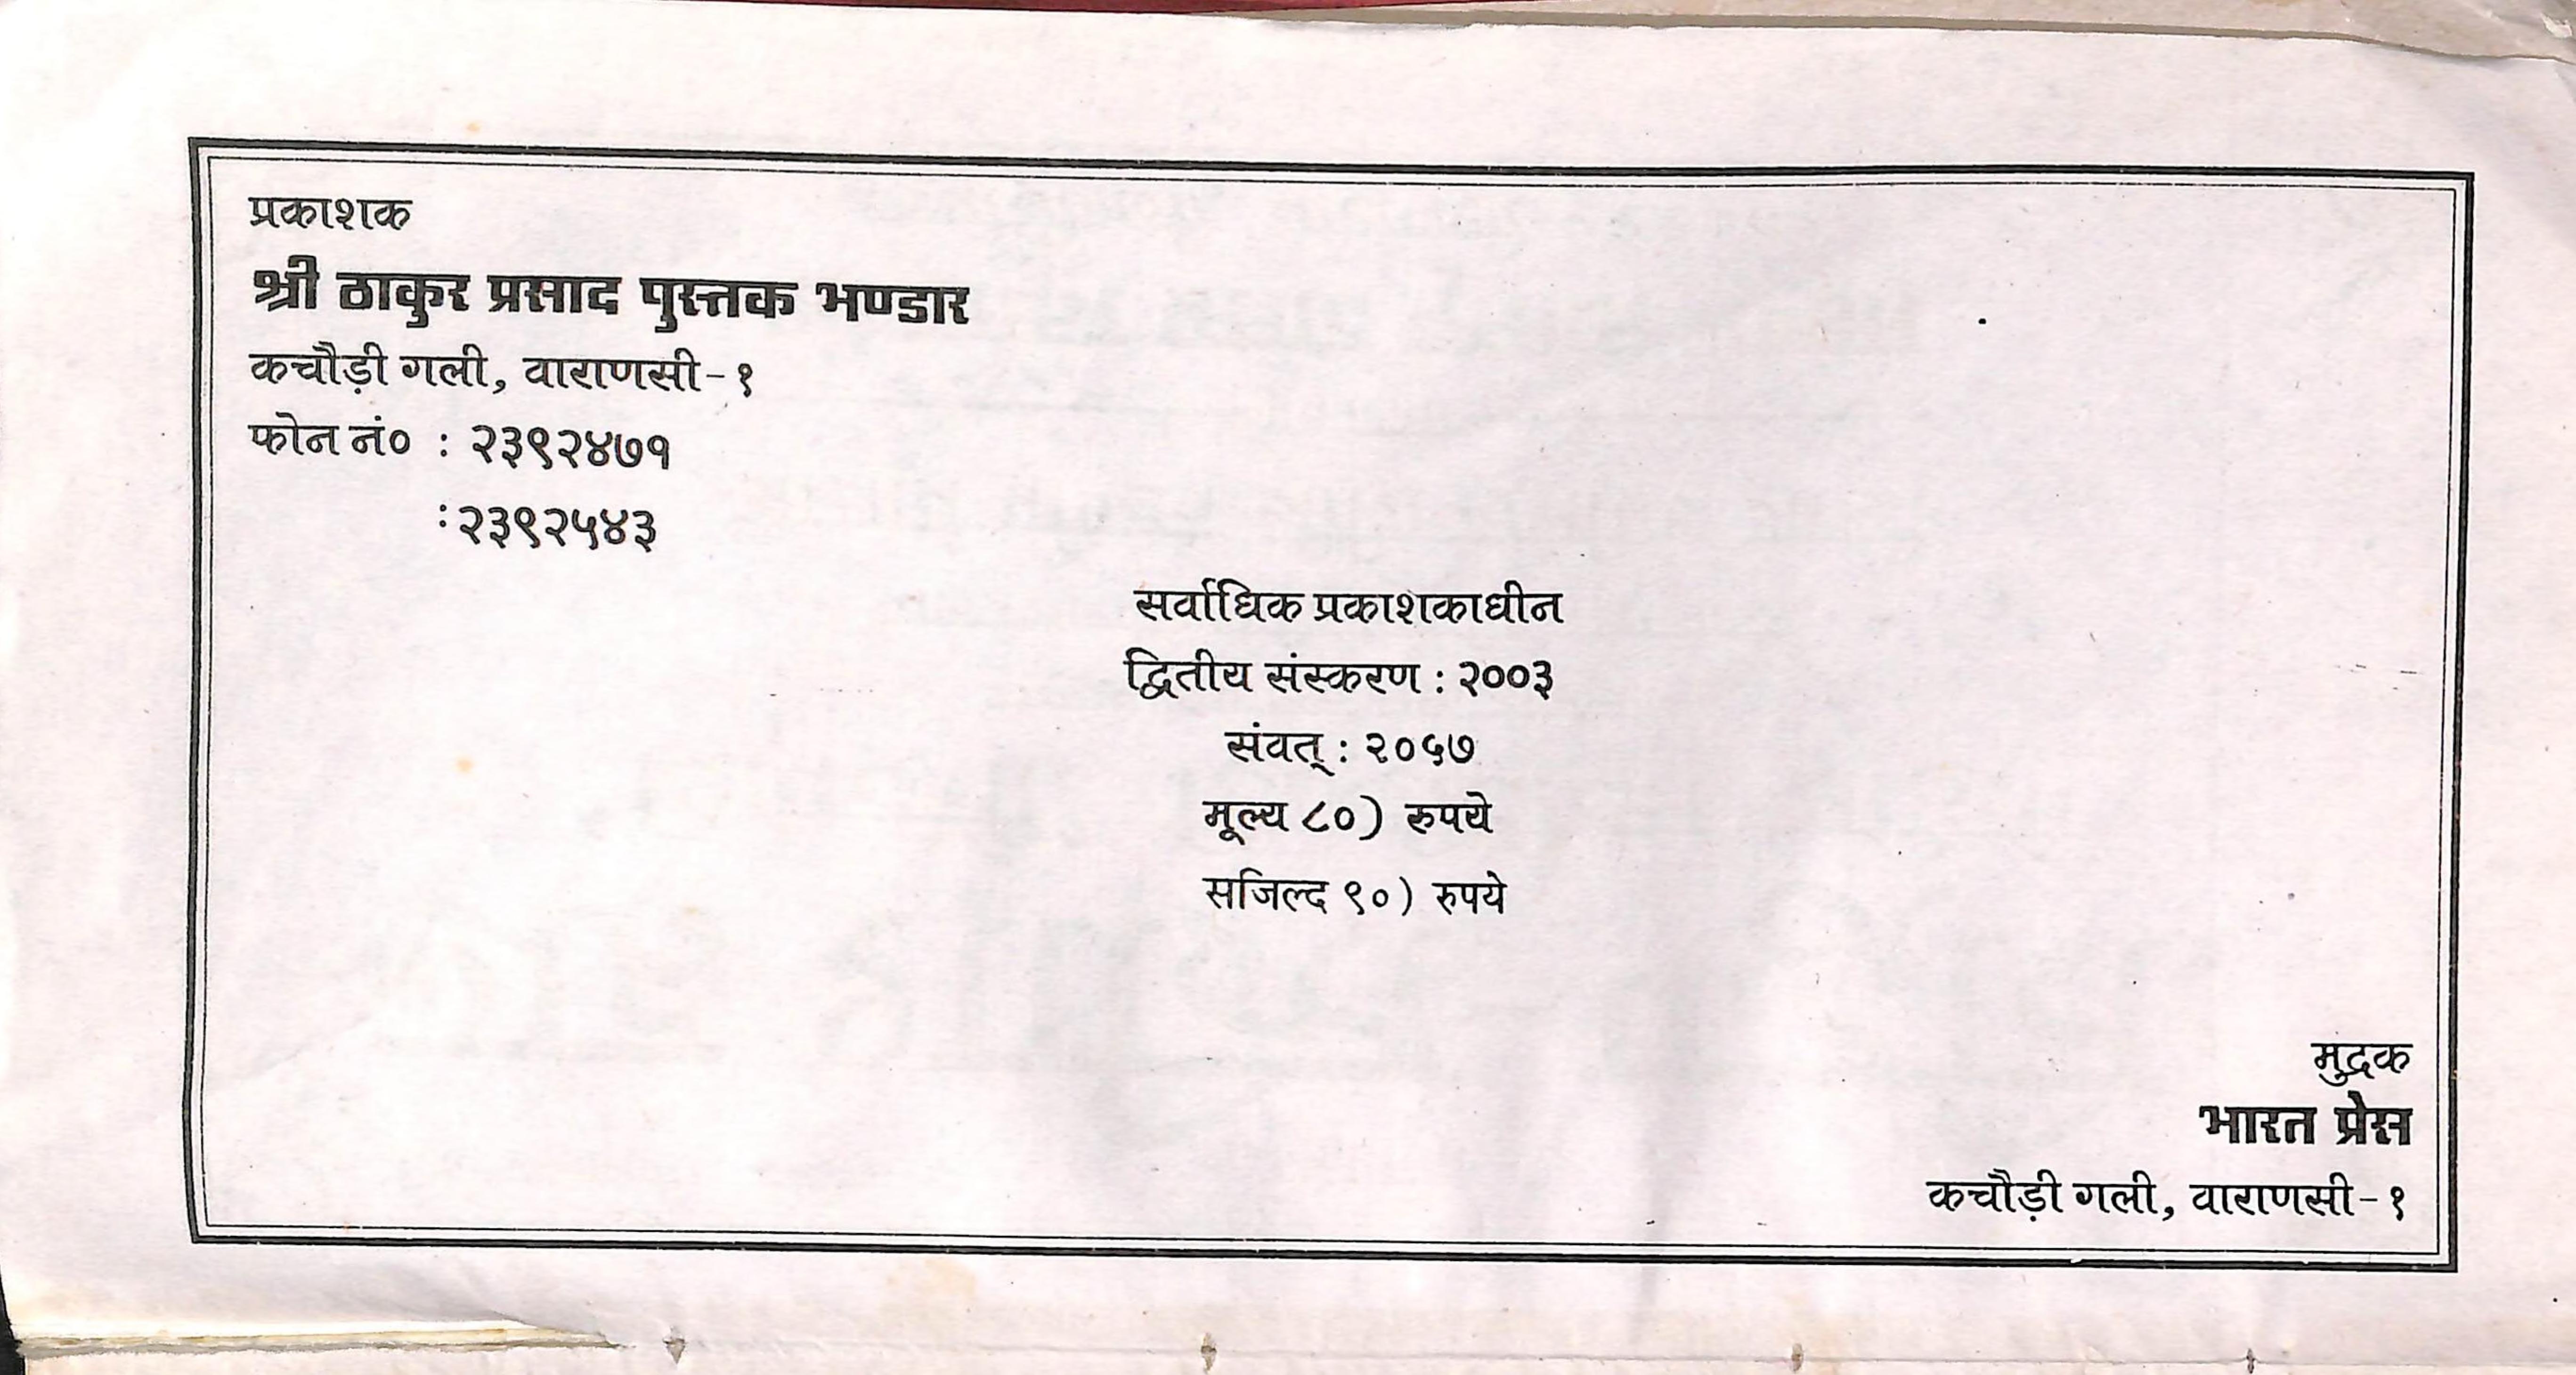 प्रकाशक
श्री ठाकुर प्रसाद पुस्तक भण्डार
कचौड़ी गली, वाराणसी-१
फोन नं० : २३९२४७१
:२३९२५४३
सर्वाधिक प्रकाशकाधीन
द्वितीय संस्करण : २००३
संवत् : २०५७
मूल्य ८०) रुपये
सजिल्द ९०) रुपये
मुद्रक
भारत प्रेस
कचौड़ी गली, वाराणसी-१